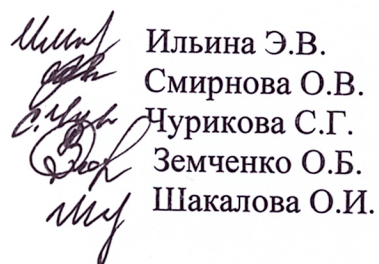 Ильина Э.В.
Смирнова О.В.
Чурикова С.Г.
Земченко О.Б.
Шакалова О.И.